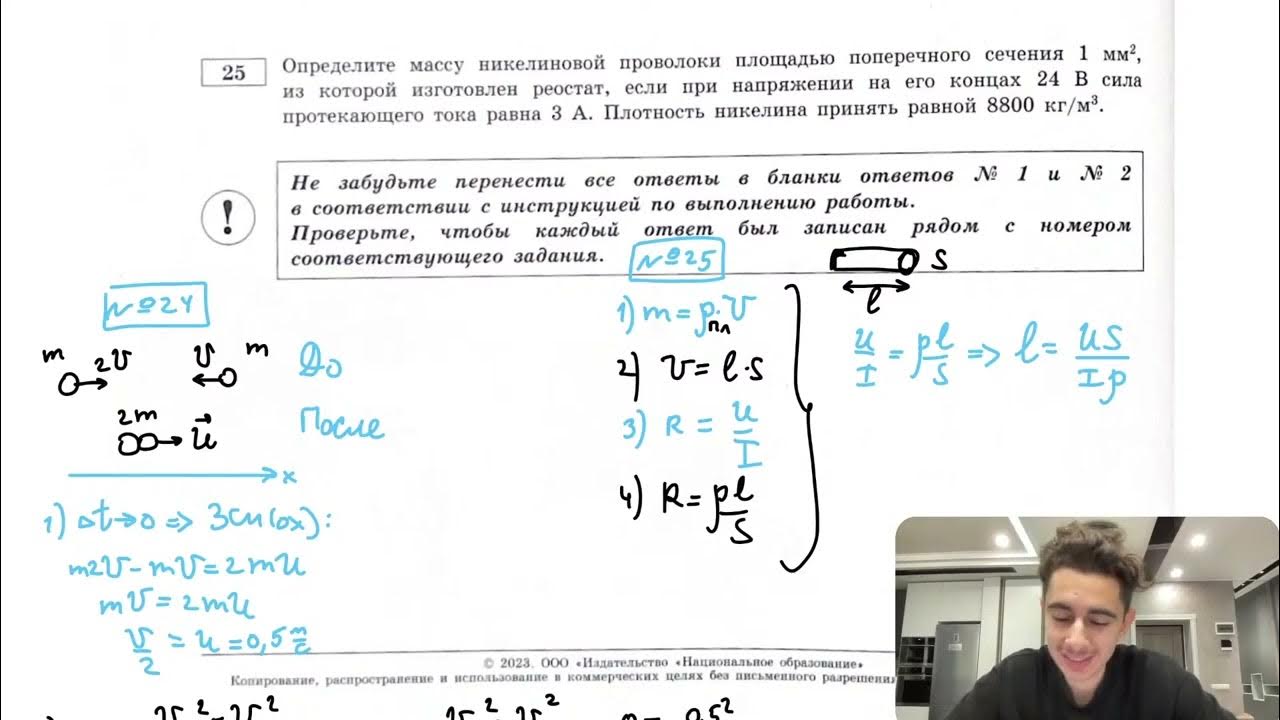 25
Определите массу никелиновой проволоки площадью поперечного сечения 1 мм²,
из которой изготовлен реостат, если при напряжении на его концах 24 В сила
протекающего тока равна 3 А. Плотность никелина принять равной 8800 кг/м³.
!
Не забудьте перенести все ответы в бланки ответов № 1 и № 2
в соответствии с инструкцией по выполнению работы.
Проверьте, чтобы каждый ответ был записан рядом с номером
соответствующего задания.
№24
m 2V V m До
2m u⃗ После
x
1) Δt→0 => ЗСИ(ox):
m2V - mV = 2mu
mV = 2mu
V/2 = u = 0,5 м/с
№25
1) m = ρпл·V
2) V = l·S
3) R = U/I
4) R = ρl/S
S
l
U/I = ρl/S => l = US/Iρ
© 2023. ООО «Издательство «Национальное образование»
Копирование, распространение и использование в коммерческих целях без письменного разрешения